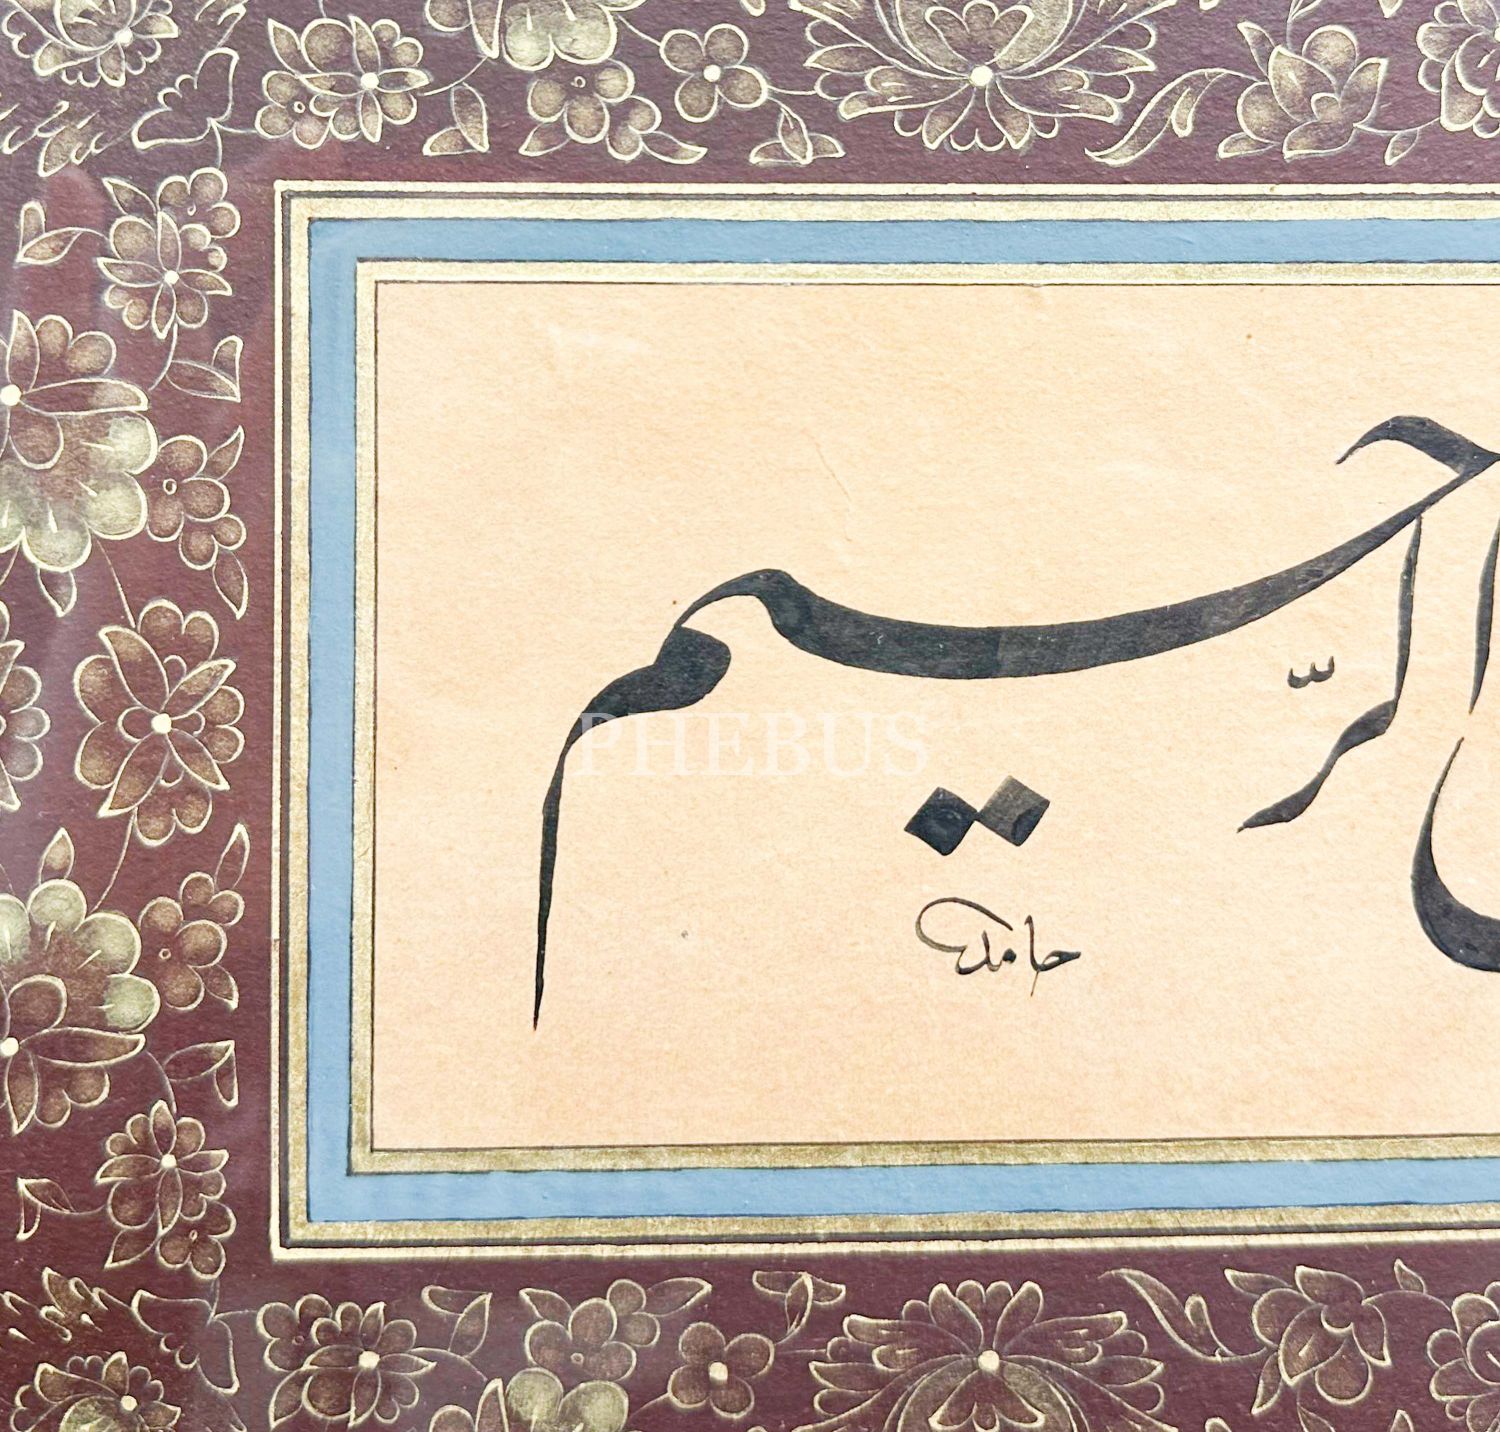 الرّحيم
حامد
PHEBUS